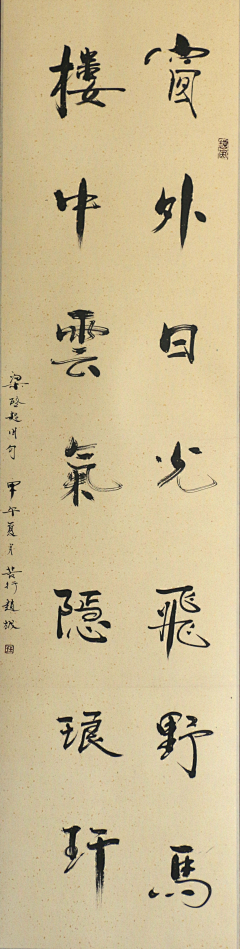 窗外日光飛野馬
樓中雲氣隱琅玕
梁啓超聯句 甲午夏月